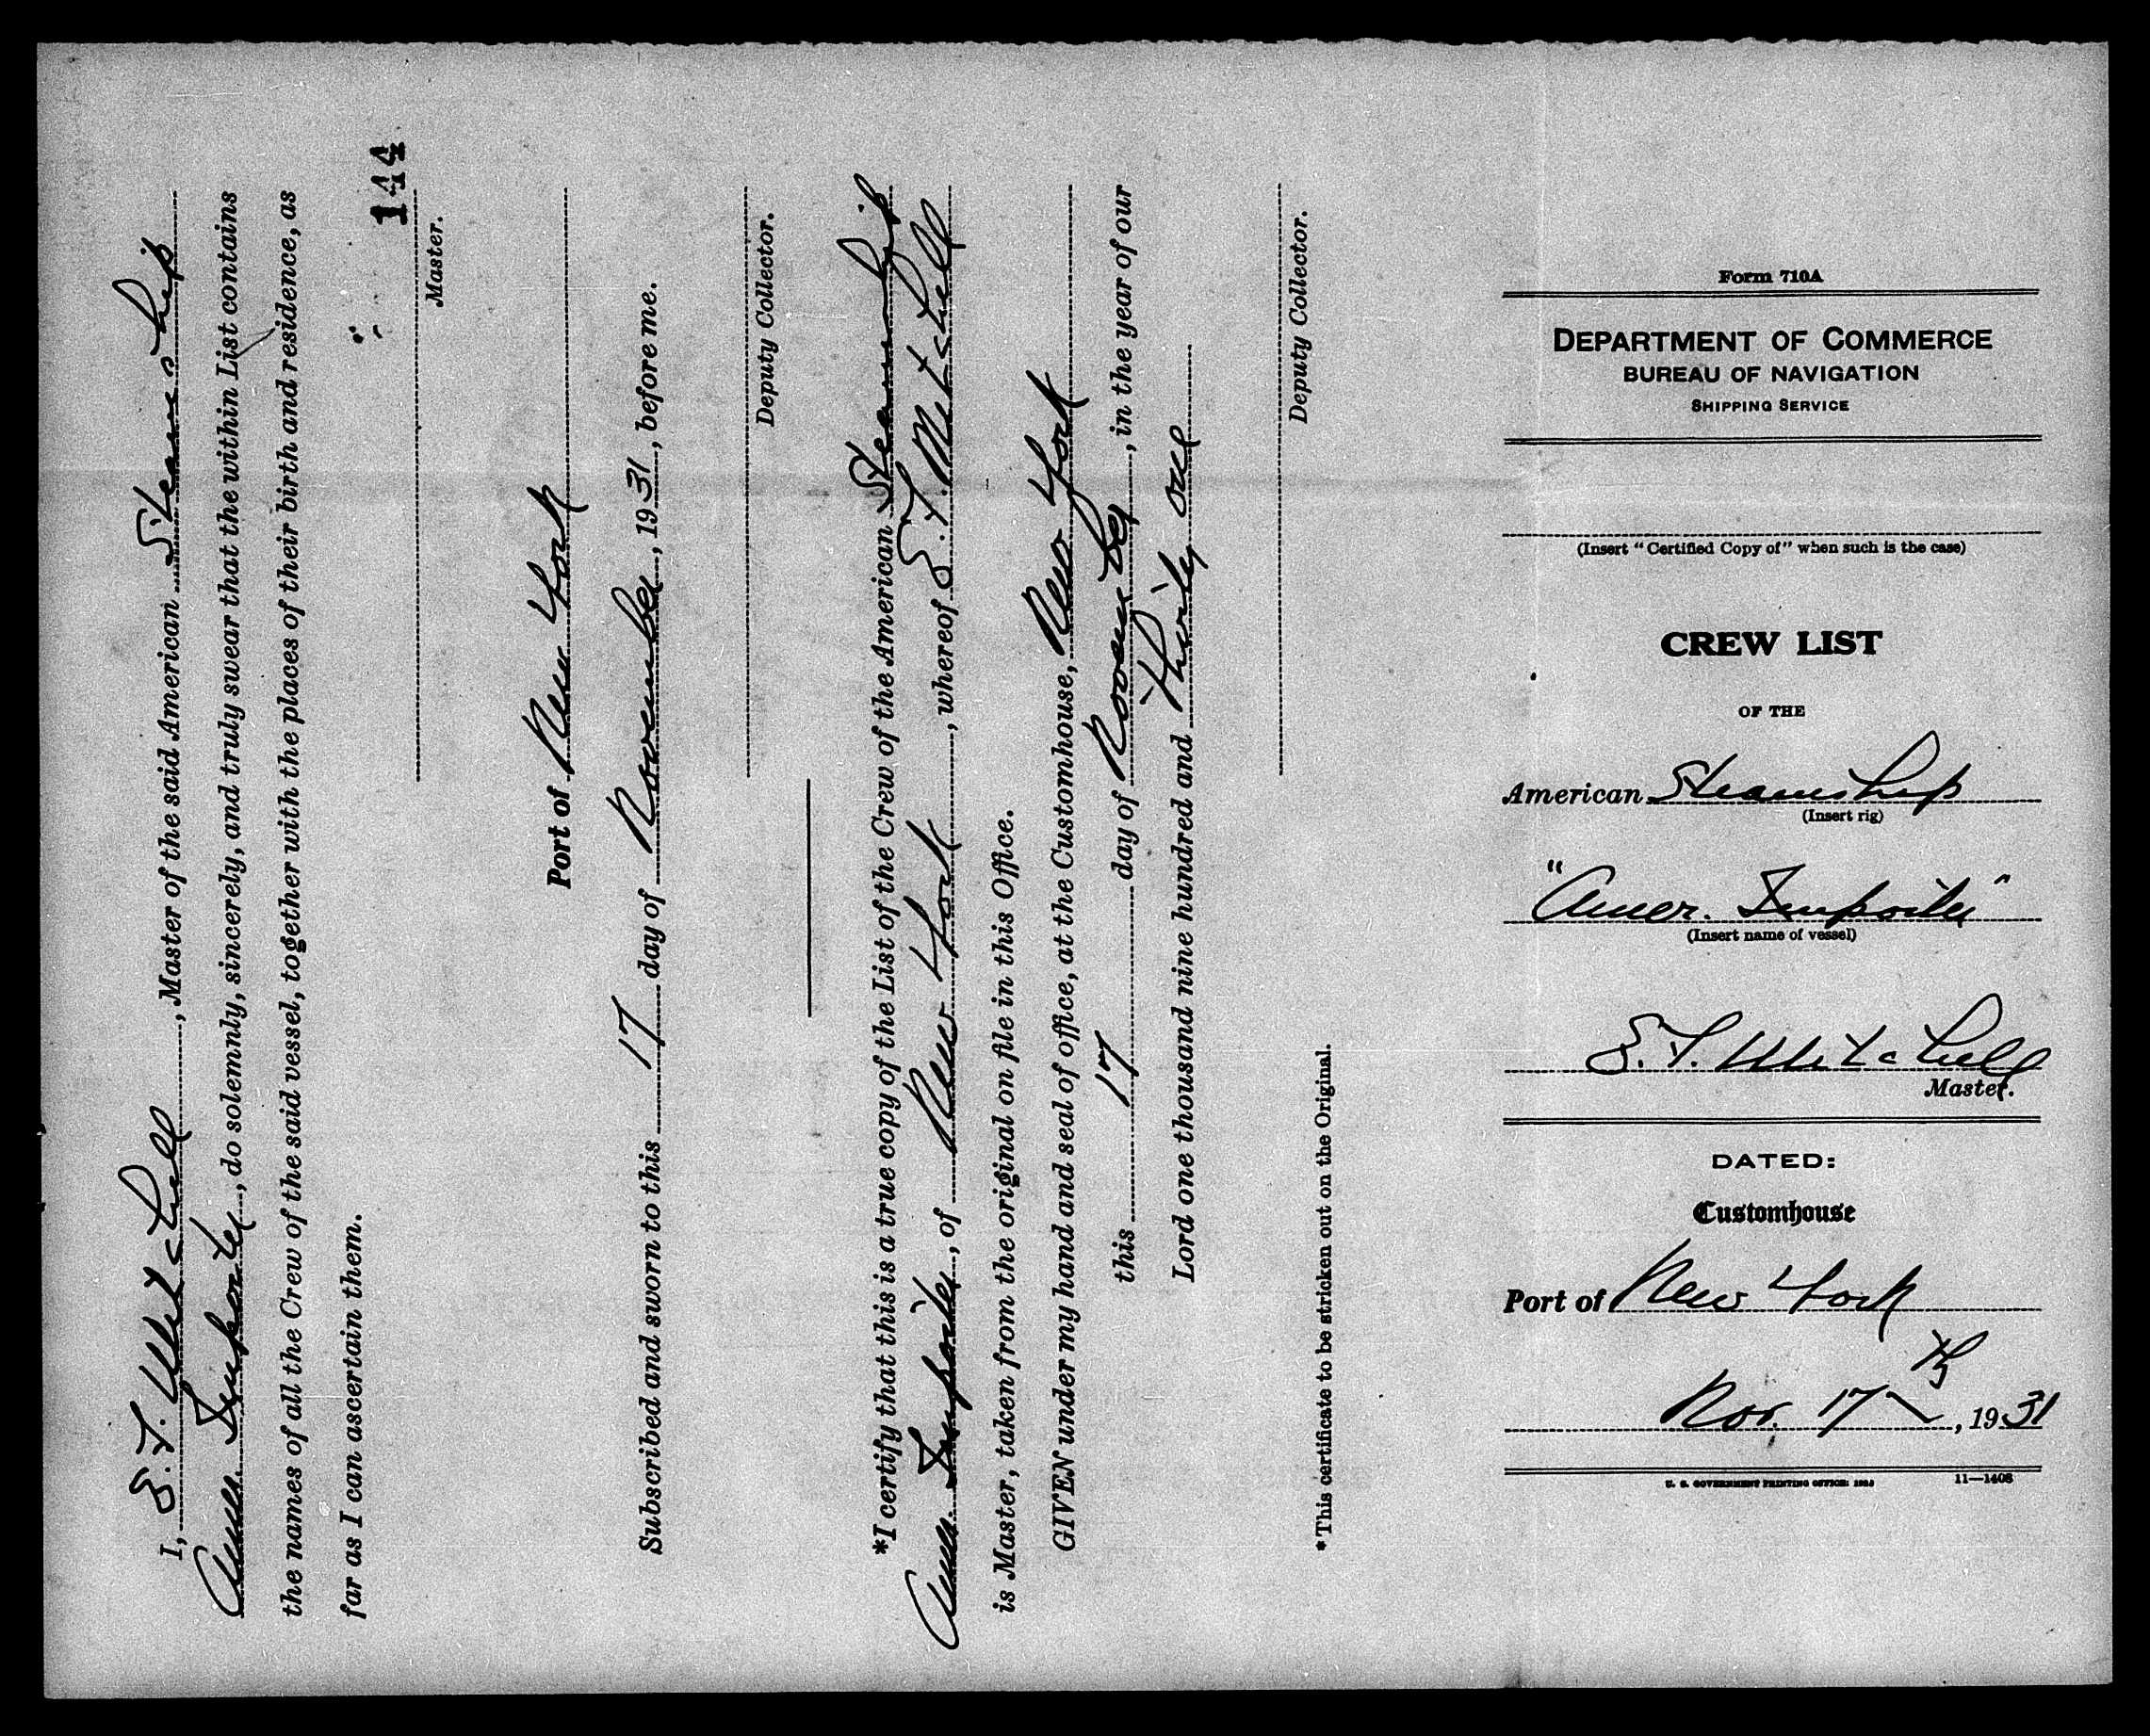 I, E. T. Mitchell, Master of the said American Steamship
Amer. Importer, do solemnly, sincerely, and truly swear that the within List contains
the names of all the Crew of the said vessel, together with the places of their birth and residence, as
far as I can ascertain them.
144
Master.
Port of New York
Subscribed and sworn to this 17 day of November, 1931, before me.
Deputy Collector.
*I certify that this is a true copy of the List of the Crew of the American Steamship
Amer. Importer, of New York, whereof E. T. Mitchell
is Master, taken from the original on file in this Office.
GIVEN under my hand and seal of office, at the Customhouse, New York
this 17 day of November, in the year of our
Lord one thousand nine hundred and thirty one
Deputy Collector.
*This certificate to be stricken out on the Original.
Form 710A
DEPARTMENT OF COMMERCE
BUREAU OF NAVIGATION
SHIPPING SERVICE
(Insert "Certified Copy of" when such is the case)
CREW LIST
OF THE
American Steamship
(Insert rig)
"Amer. Importer"
(Insert name of vessel)
E. T. Mitchell
Master.
DATED:
Customhouse
Port of New York
Nov. 17th, 1931
U. S. GOVERNMENT PRINTING OFFICE:
11—1408